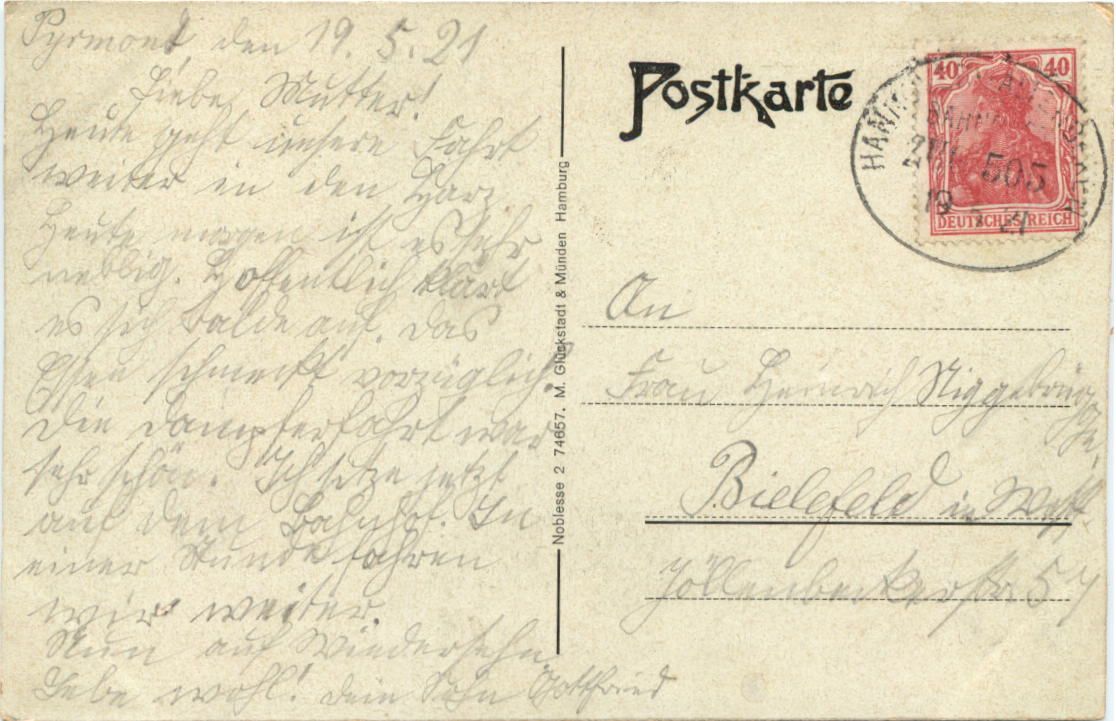 Pyrmont den 19. 5. 21
Liebe Mutter!
Heute geht unsere Fahrt
weiter in den Harz.
Heute morgen ist es sehr
neblig. Hoffentlich klärt
es sich balde auf. Das
Essen schmeckt vorzüglich.
Die Dampferfahrt war
sehr schön. Ich sitze jetzt
auf dem Bahnhof. In
einer Stunde fahren
wir weiter.
Nun auf Wiedersehn
Lebe wohl! Dein Sohn Gottfried
Noblesse 2 74657. M. Glückstadt & Münden Hamburg
Postkarte
40 40
DEUTSCHES REICH
BAHNPOST
ZUG 505
19 5 21
An
Frau Heinrich Niggebrügge,
Bielefeld in Westf.
Jöllenbeckerstr 57